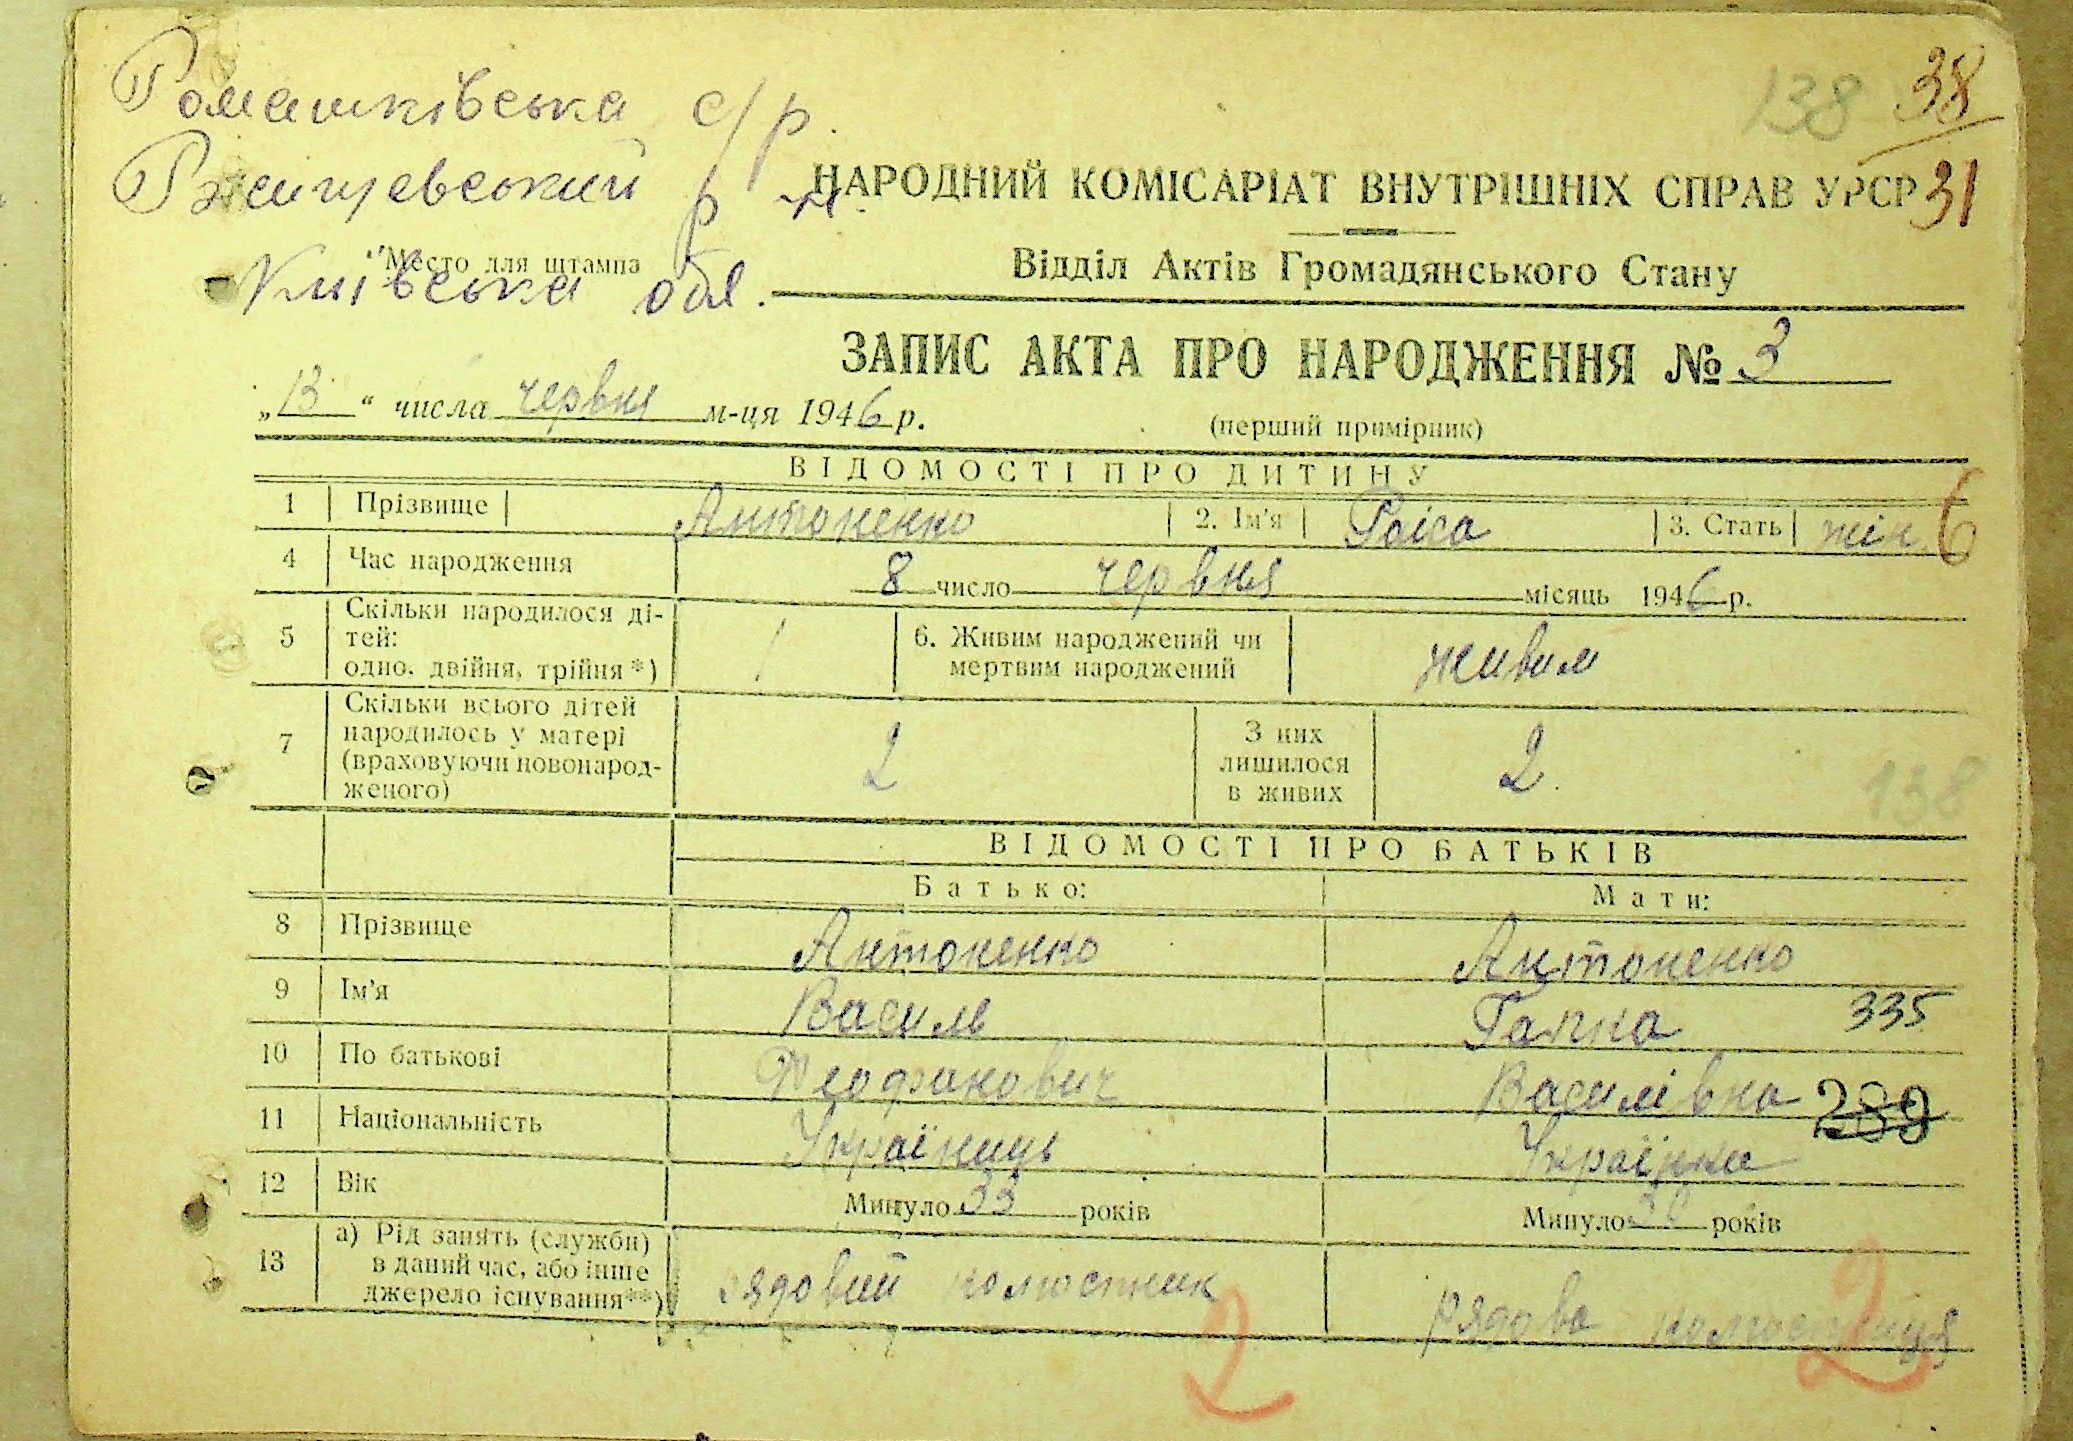 Ромашківська с/р.
138 38
Ржищевський р-н.
НАРОДНИЙ КОМІСАРІАТ ВНУТРІШНІХ СПРАВ УРСР 31
Место для штампа
Київська обл.
Відділ Актів Громадянського Стану
ЗАПИС АКТА ПРО НАРОДЖЕННЯ № 3
„13“ числа червня м-ця 1946 р.
(перший примірник)
ВІДОМОСТІ ПРО ДИТИНУ
1 Прізвище Антоненко 2. Ім'я Раіса 3. Стать жін. 6
4 Час народження 8 число червня місяць 1946 р.
5 Скільки народилося ді-
тей:
одно, двійня, трійня*) 1 6. Живим народжений чи
мертвим народжений живим
7 Скільки всього дітей
народилось у матері
(враховуючи новонарод-
женого) 2 З них
лишилося
в живих 2.
138
ВІДОМОСТІ ПРО БАТЬКІВ
Батько: Мати:
8 Прізвище Антоненко Антоненко
9 Ім'я Василь Гапка 335
10 По батькові Феофанович Василівна 289
11 Національність Україниць Українка
12 Вік Минуло 33 років Минуло років
13 а) Рід занять (служби)
в даний час, або інше
джерело існування**) рядовий колгостник рядова колгостниця
2 2